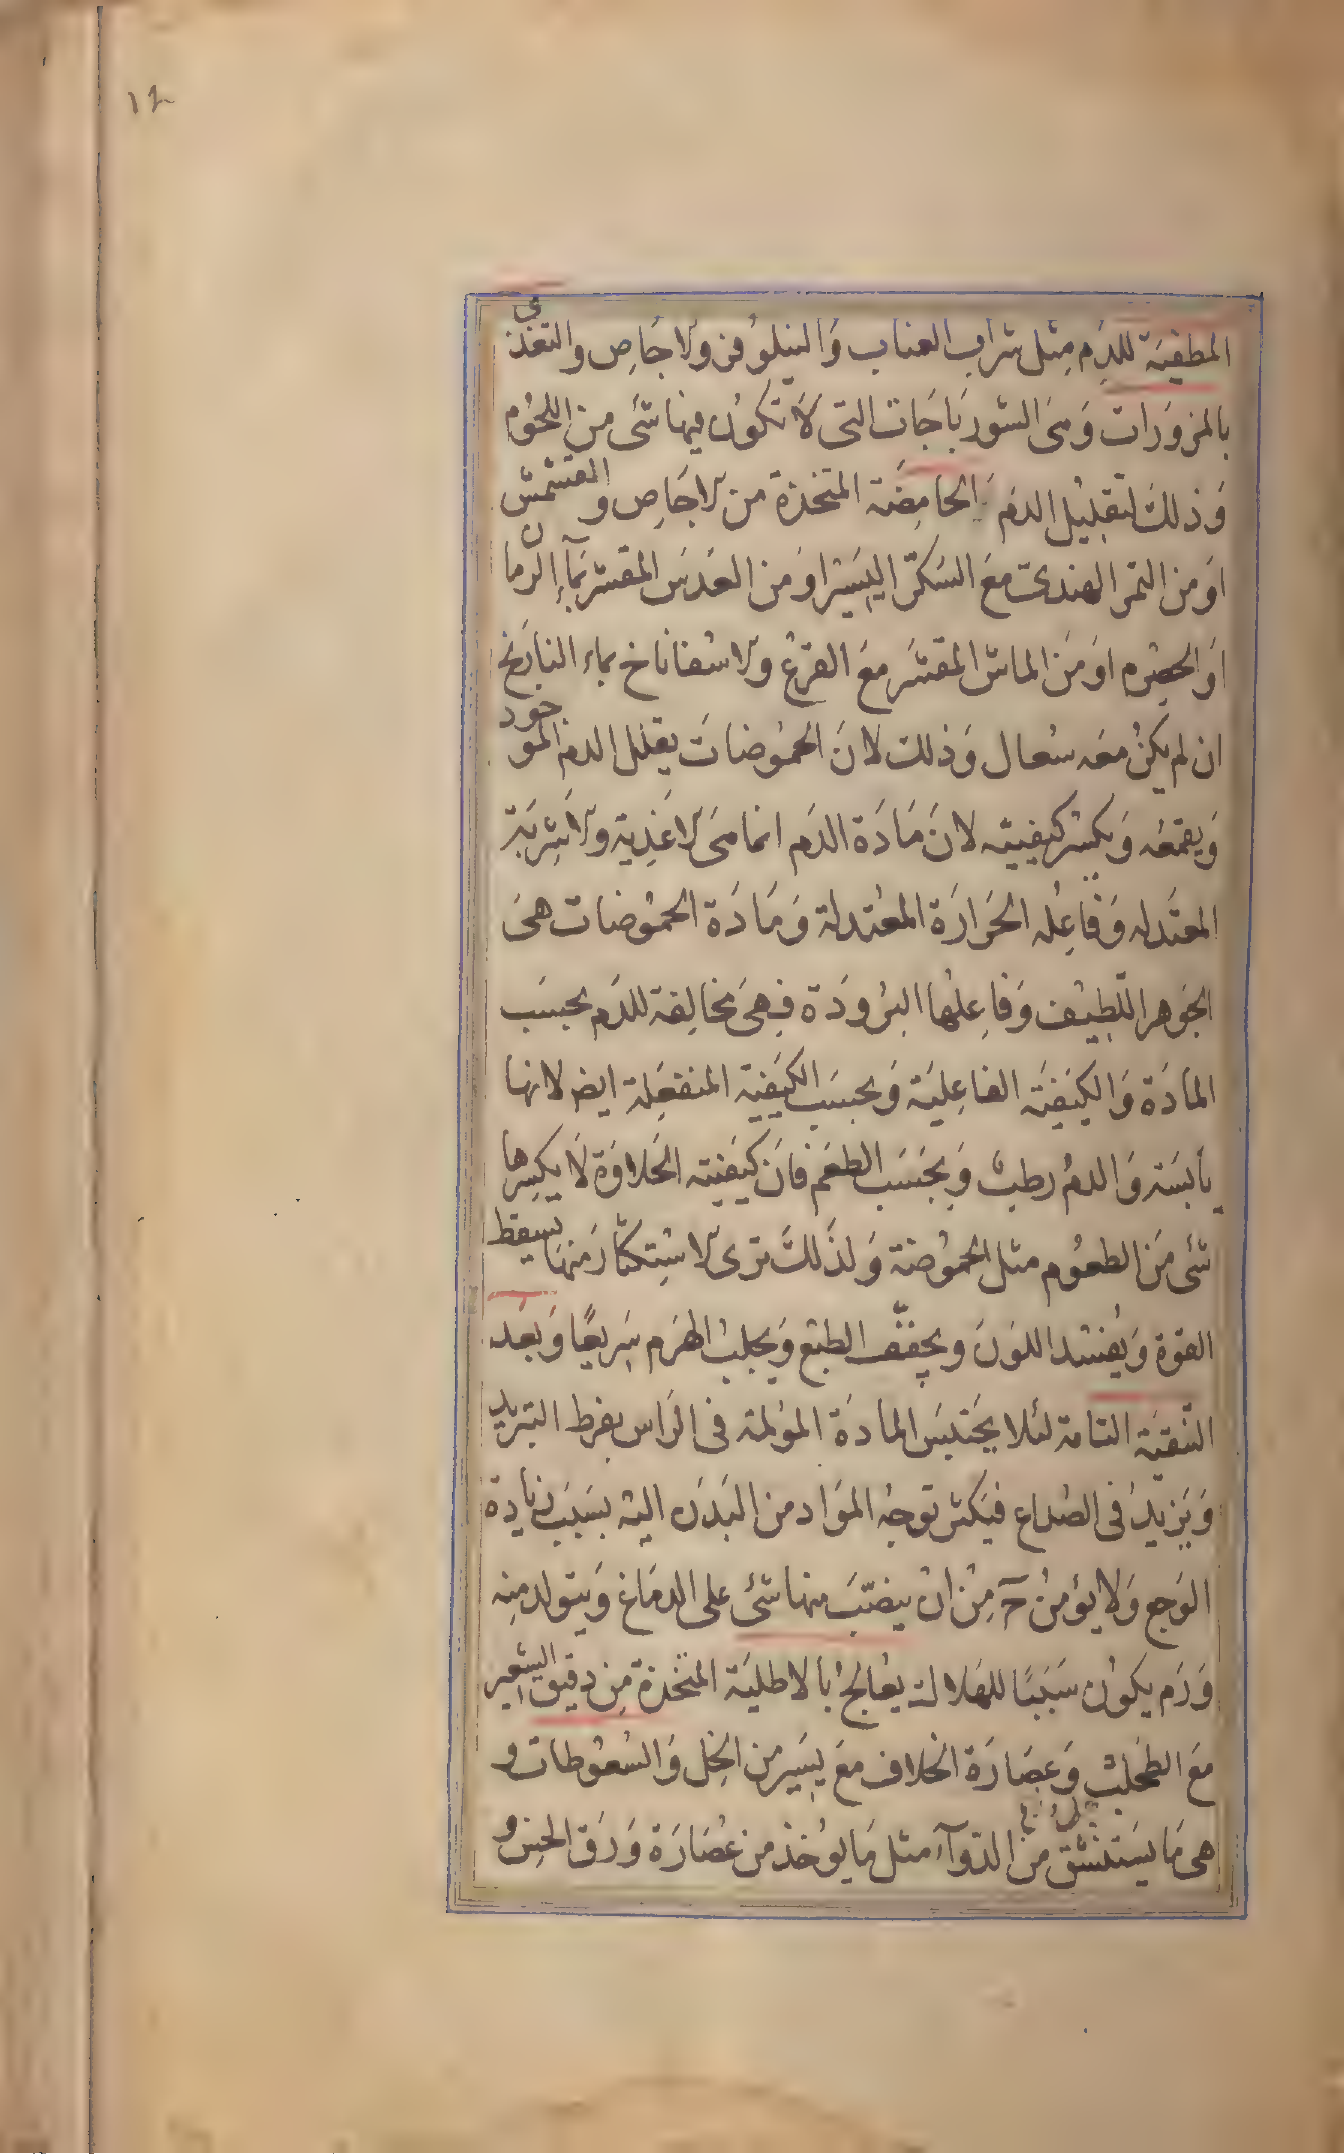 ١٢
المطفية للدم مثل شراب العناب والنيلوفر والاجاص والتغذى
بالمزورات وهى الشورباجات التى لا تكون فيها شى من اللحوم
وذلك لتقليل الدم الحامضة المتخذة من الاجاص والمشمش
او من التمر الهندى مع السكر اليسير او من العدس المقشر بماء الرمان
او الحصرم او من الماش المقشر مع القرع والاسفاناخ بماء النارنج
ان لم يكن معه سعال وذلك لان الحموضات يقلل الدم الموجود
ويقمعه ويكسر كيفيته لان مادة الدم انما هى الاغذية والاشربة
المعتدله وفاعله الحرارة المعتدلة ومادة الحموضات هى
الجوهر اللطيف وفاعلها البرودة فهى مخالفة للدم بحسب
المادة والكيفية الفاعلية وبحسب الكيفية المنفعلة ايض لانها
يابسة والدم رطب وبحسب الطعم فان كيفية الحلاوة لا يكسرها
شى من الطعوم مثل الحموضة ولذلك ترى الاستكثار منها يسقط
القوة ويفسد اللون ويجفف الطبع ويجلب الهرم سريعا وبعد
التنقية التامة لئلا يحتبس المادة المؤلمة فى الراس بفرط التبريد
ويزيد فى الصداع فيكثر توجه المواد من البدن اليه بسبب زيادة
الوجع ولا يؤمن ح من ان ينصب منها شى على الدماغ ويتولد منه
ورم يكون سببا للهلاك يعالج بالاطلية المتخذة من دقيق الشعير
مع الطحلب وعصارة الخلاف مع يسير من الخل والسعوطات و
هى ما يستنشق من الدواء مثل ما يوخذ من عصارة ورق الخس و